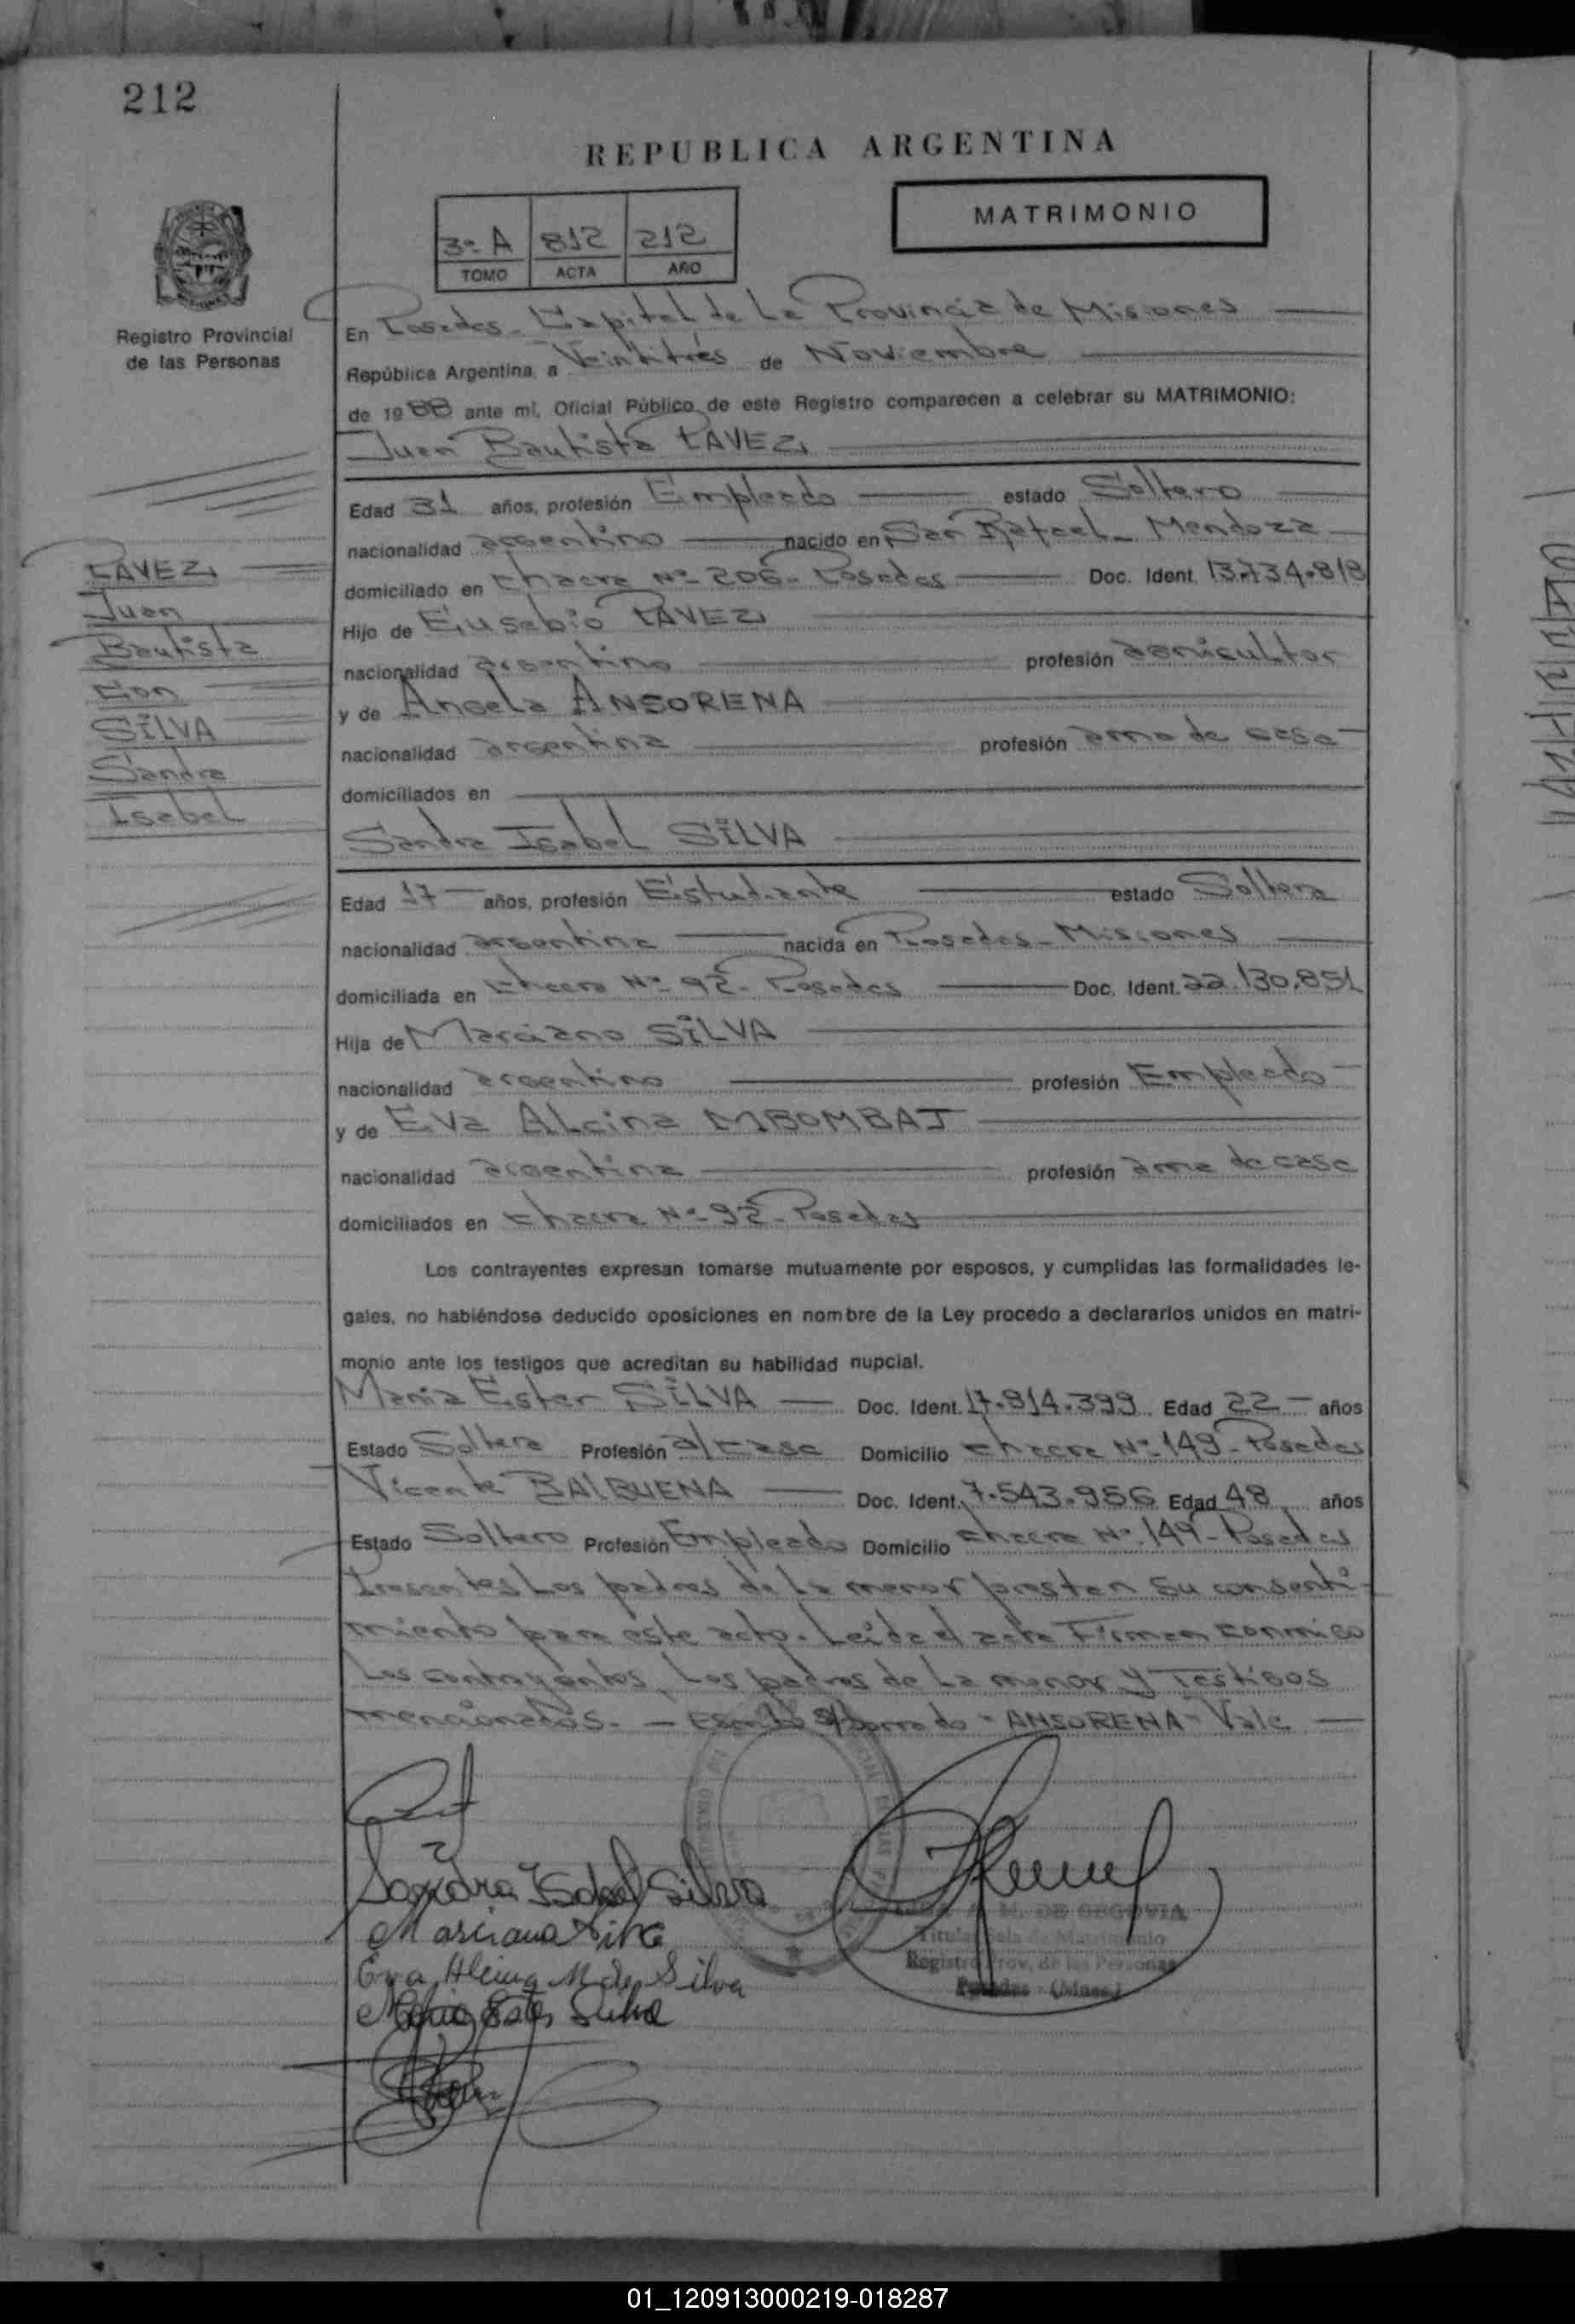 212
REPUBLICA ARGENTINA
MATRIMONIO
3º A 812 212
TOMO ACTA AÑO
Registro Provincial
de las Personas
En Posadas - Capital de La Provincia de Misiones
República Argentina, a Veintitrés de Noviembre
de 1988 ante mí, Oficial Público de este Registro comparecen a celebrar su MATRIMONIO:
Juan Bautista PAVEZ
Edad 31 años, profesión Empleado estado Soltero
nacionalidad argentino nacido en San Rafael - Mendoza
domiciliado en chacra Nº 206 - Posadas Doc. Ident. 13.734.818
Hijo de Eusebio PAVEZ
nacionalidad argentino profesión agricultor
y de Angela ANSORENA
nacionalidad argentina profesión ama de casa
domiciliados en
PAVEZ
Juan
Bautista
Con
SILVA
Sandra
Isabel
Sandra Isabel SILVA
Edad 17 años, profesión Estudiante estado Soltera
nacionalidad argentina nacida en Posadas - Misiones
domiciliada en chacra Nº 92 - Posadas Doc. Ident. 22.130.851
Hija de Marciano SILVA
nacionalidad argentino profesión Empleado
y de Eva Alcina MBOMBAJ
nacionalidad argentina profesión ama de casa
domiciliados en chacra Nº 92 - Posadas
Los contrayentes expresan tomarse mutuamente por esposos, y cumplidas las formalidades le-
gales, no habiéndose deducido oposiciones en nombre de la Ley procedo a declararlos unidos en matri-
monio ante los testigos que acreditan su habilidad nupcial.
Maria Ester SILVA Doc. Ident. 17.814.399 Edad 22 años
Estado Soltera Profesión a/casa Domicilio chacra Nº 149 - Posadas
Vicente BALBUENA Doc. Ident. 7.543.956 Edad 48 años
Estado Soltero Profesión Empleado Domicilio chacra Nº 149 - Posadas
Presentes Los padres de La menor prestan su consenti-
miento para este acto. Leída el acta Firman conmigo
Los contrayentes, Los padres de La menor y Testigos
mencionados. - Escrito s/borrado "ANSORENA" Vale
Sandra Isabel Silva
Marciano Silva
Eva Alcina M de Silva
Maria Ester Silva
M. DE SEGOVIA
Titular Sala de Matrimonio
Registro Prov. de las Personas
Posadas - (Mnes.)
01_120913000219-018287